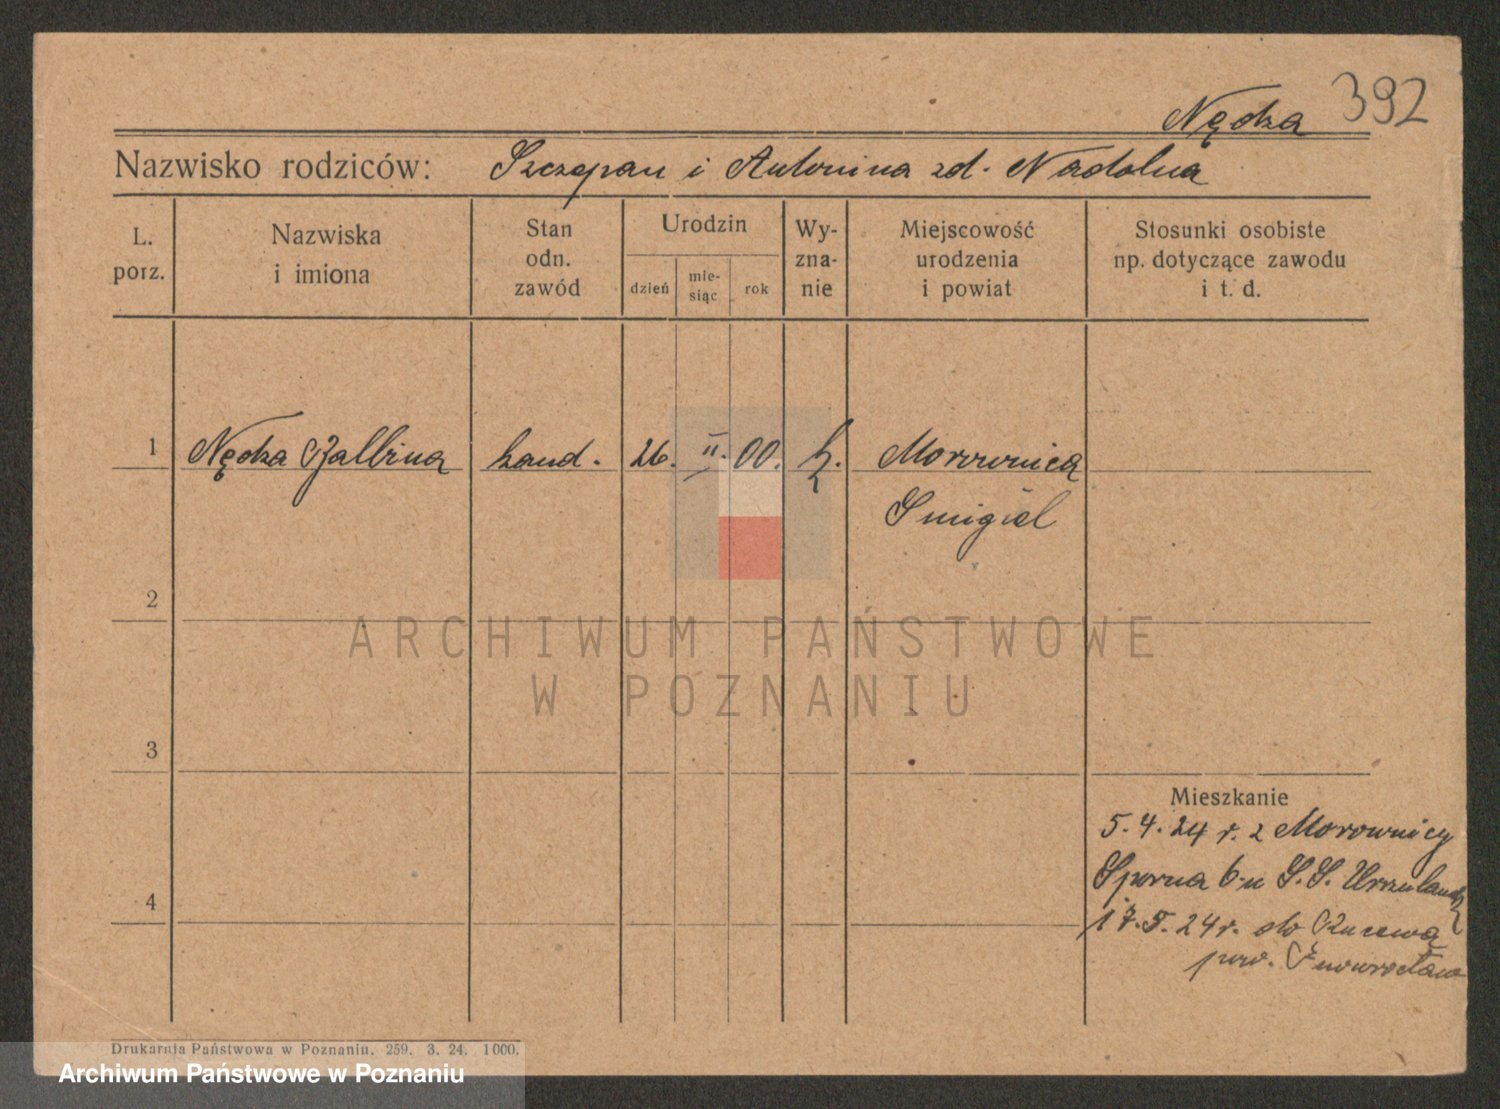 392
Nędza
Nazwisko rodziców: Szczepan i Antonina zd. Nadolna
L. porz.
Nazwiska i imiona
Stan odn. zawód
Urodzin
dzień
mie-siąc
rok
Wy-zna-nie
Miejscowość urodzenia i powiat
Stosunki osobiste np. dotyczące zawodu i t. d.
1 Nędza Balbina hand. 26. II. 00. k. Morownica
Smigiel
2
ARCHIWUM PAŃSTWOWE
W POZNANIU
3
Mieszkanie
5. 4. 24 r. z Morownicy
Sporna 6 u S. S. Urszulanek
4
17. 5. 24 r. do
pow. Inowrocław
Drukarnia Państwowa w Poznaniu. 259. 3. 24. 1000.
Archiwum Państwowe w Poznaniu